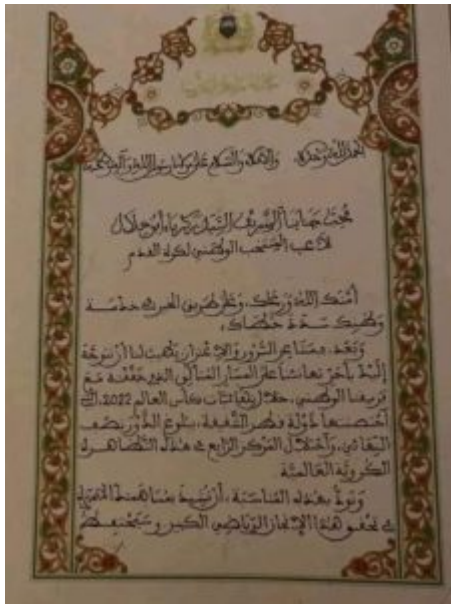 الحمد لله وحده، والصلاة والسلام على مولانا رسول الله وآله وصحبه
محب جنابنا الشريف السيد زكرياء أبو خلال
لاعب المنتخب الوطني لكرة القدم
أمنك الله ورعاك، وعلى طريق الخير في خدمة
وطنك سدد خطاك،
وبعد، فمما يبعث السرور والاعتزاز في أنفسنا أن نتوجه
إليك بأحر تهانئنا على المسار المثالي الذي حققته مع
فريقنا الوطني، خلال نهائيات كأس العالم 2022، التي
احتضنتها دولة قطر الشقيقة، ببلوغ الدور نصف
النهائي، واحتلال المركز الرابع في هذه التظاهرة
الكروية العالمية.
ونود بهذه المناسبة، أن نشيد بمساهمتك
في تحقيق هذا الإنجاز الرياضي الكبير